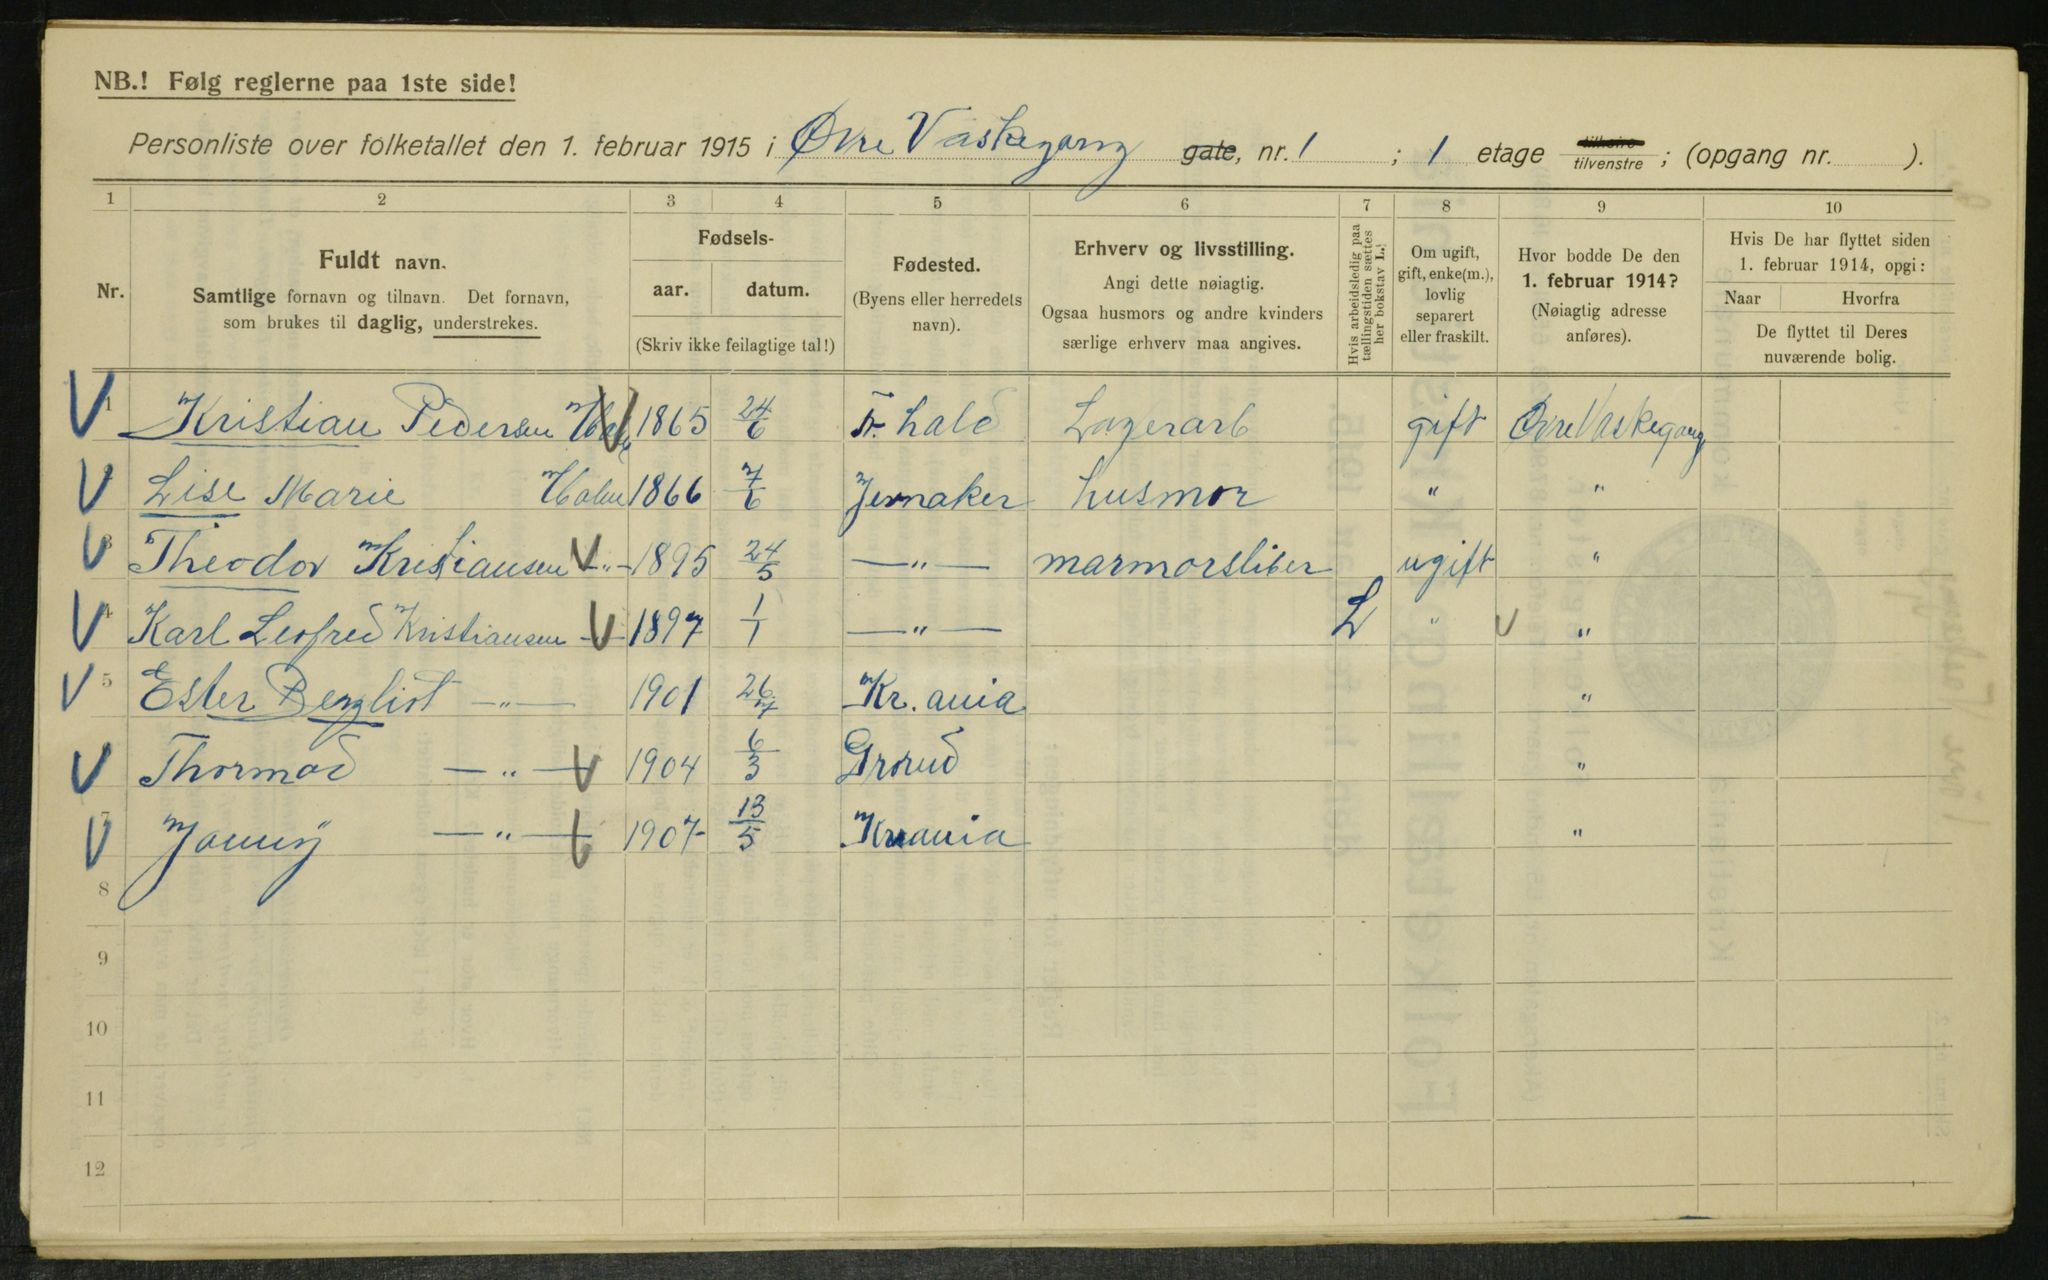 NB.! Følg reglerne paa 1ste side!
Personliste over folketallet den 1. februar 1915 i Øvre Vaskegang gate, nr. 1 ; 1 etage tilhøire tilvenstre ; (opgang nr. ).
1 2 3 4 5 6 7 8 9 10
Nr.
Fuldt navn.
Samtlige fornavn og tilnavn. Det fornavn,
som brukes til daglig, understrekes.
Fødsels-
aar. datum.
(Skriv ikke feilagtige tal!)
Fødested.
(Byens eller herredets
navn).
Erhverv og livsstilling.
Angi dette nøiagtig.
Ogsaa husmors og andre kvinders
særlige erhverv maa angives.
Hvis arbeidsledig paa
tællingstiden sættes
her bokstav L.
Om ugift,
gift, enke(m.),
lovlig
separert
eller fraskilt.
Hvor bodde De den
1. februar 1914?
(Nøiagtig adresse
anføres).
Hvis De har flyttet siden
1. februar 1914, opgi:
Naar Hvorfra
De flyttet til Deres
nuværende bolig.
1 Kristian Pedersen 1865 24/6 Fr. hald Lagerarb gift Øvre Vaskegang
2 Lise Marie Holm 1866 7/6 Jevnaker husmor " "
3 Theodor Kristiansen -"- 1895 24/5 -"- marmorsliber ugift "
4 Karl Leofred Kristiansen 1897 1/1 -"- L " "
5 Ester -"- 1901 26/7 Kr. ania "
Thormod -"- 1904 6/3 Grorud "
7 Jenny -"- 1907 13/5 Krania "
8
9
10
11
12